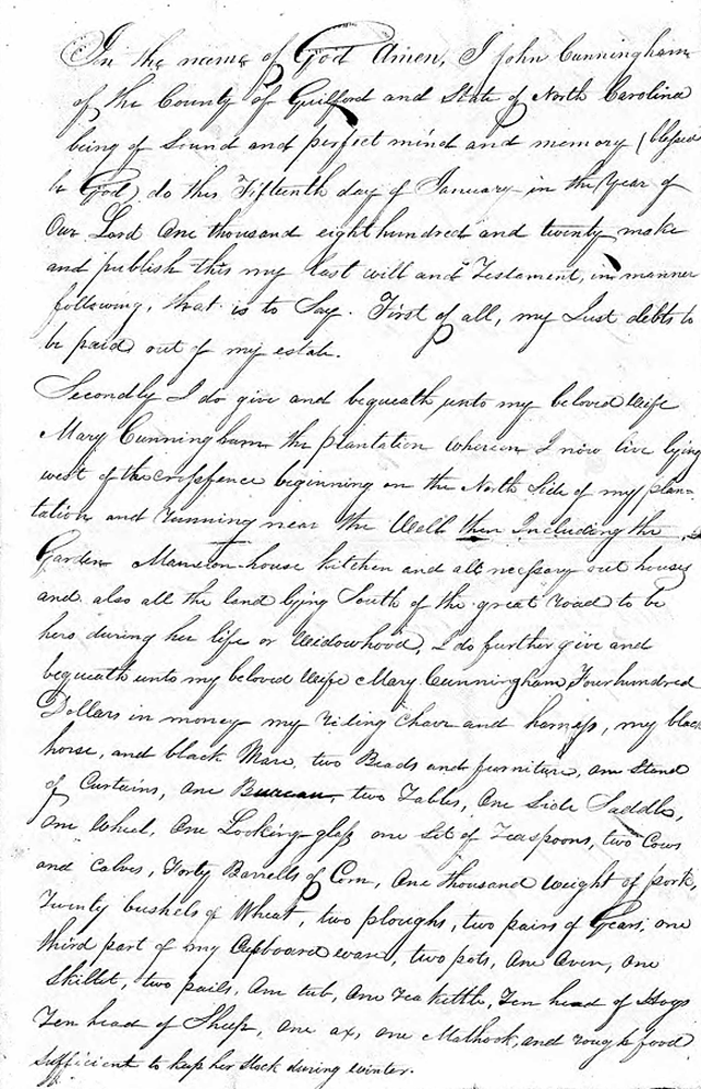 In the name of God Amen, I John Cunningham
of the County of Guilford and State of North Carolina
being of Sound and perfect mind and memory (blessed
be God) do this Fifteenth day of January in the Year of
Our Lord One thousand eight hundred and twenty make
and publish this my last will and Testament, in manner
following, that is to Say. First of all, my Just debts to
be paid out of my estate.
Secondly I do give and bequeath unto my beloved Wife
Mary Cunningham the plantation whereon I now live lying
west of the crossfence beginning on the North Side of my plan=
tation and running near the Well then Including the
Garden Mansion house kitchen and all nessary out houses
and also all the land lying South of the great road to be
hers during her life or Widowhood, I do further give and
bequeath unto my beloved Wife Mary Cunningham Four hundred
Dollars in money my riding chair and harness, my black
horse, and black Mare, two Beads and furniture, one Stand
of Curtains, one Bureau, two Tables, One Side Saddle,
one Wheel, One Looking glass one Set of Teaspoons, two Cows
and Calves, Forty Barrells of Corn, One thousand weight of pork,
Twenty bushels of Wheat, two ploughs, two pairs of Gears, one
third part of my Cupboard ware, two pots, One Oven, one
Skillet, two pails, One tub, One Tea kettle, Ten head of Hogs
Ten head of Sheep, one ax, one Mathook, and rough food
sufficient to keep her Stock during winter.